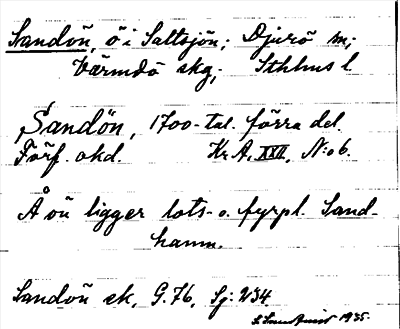 Sandön, ö i Saltsjön; Djurö m;
Värmdö skg; Sthlms l
Sandön, 1700-tal. förra del.
Förf. okd. Kr A. XXII, N:o 6.
Å ön ligger lots- o. fyrpl. Sand-
hamn.
Sandön ek, G. 76, Sj: 234.
1935